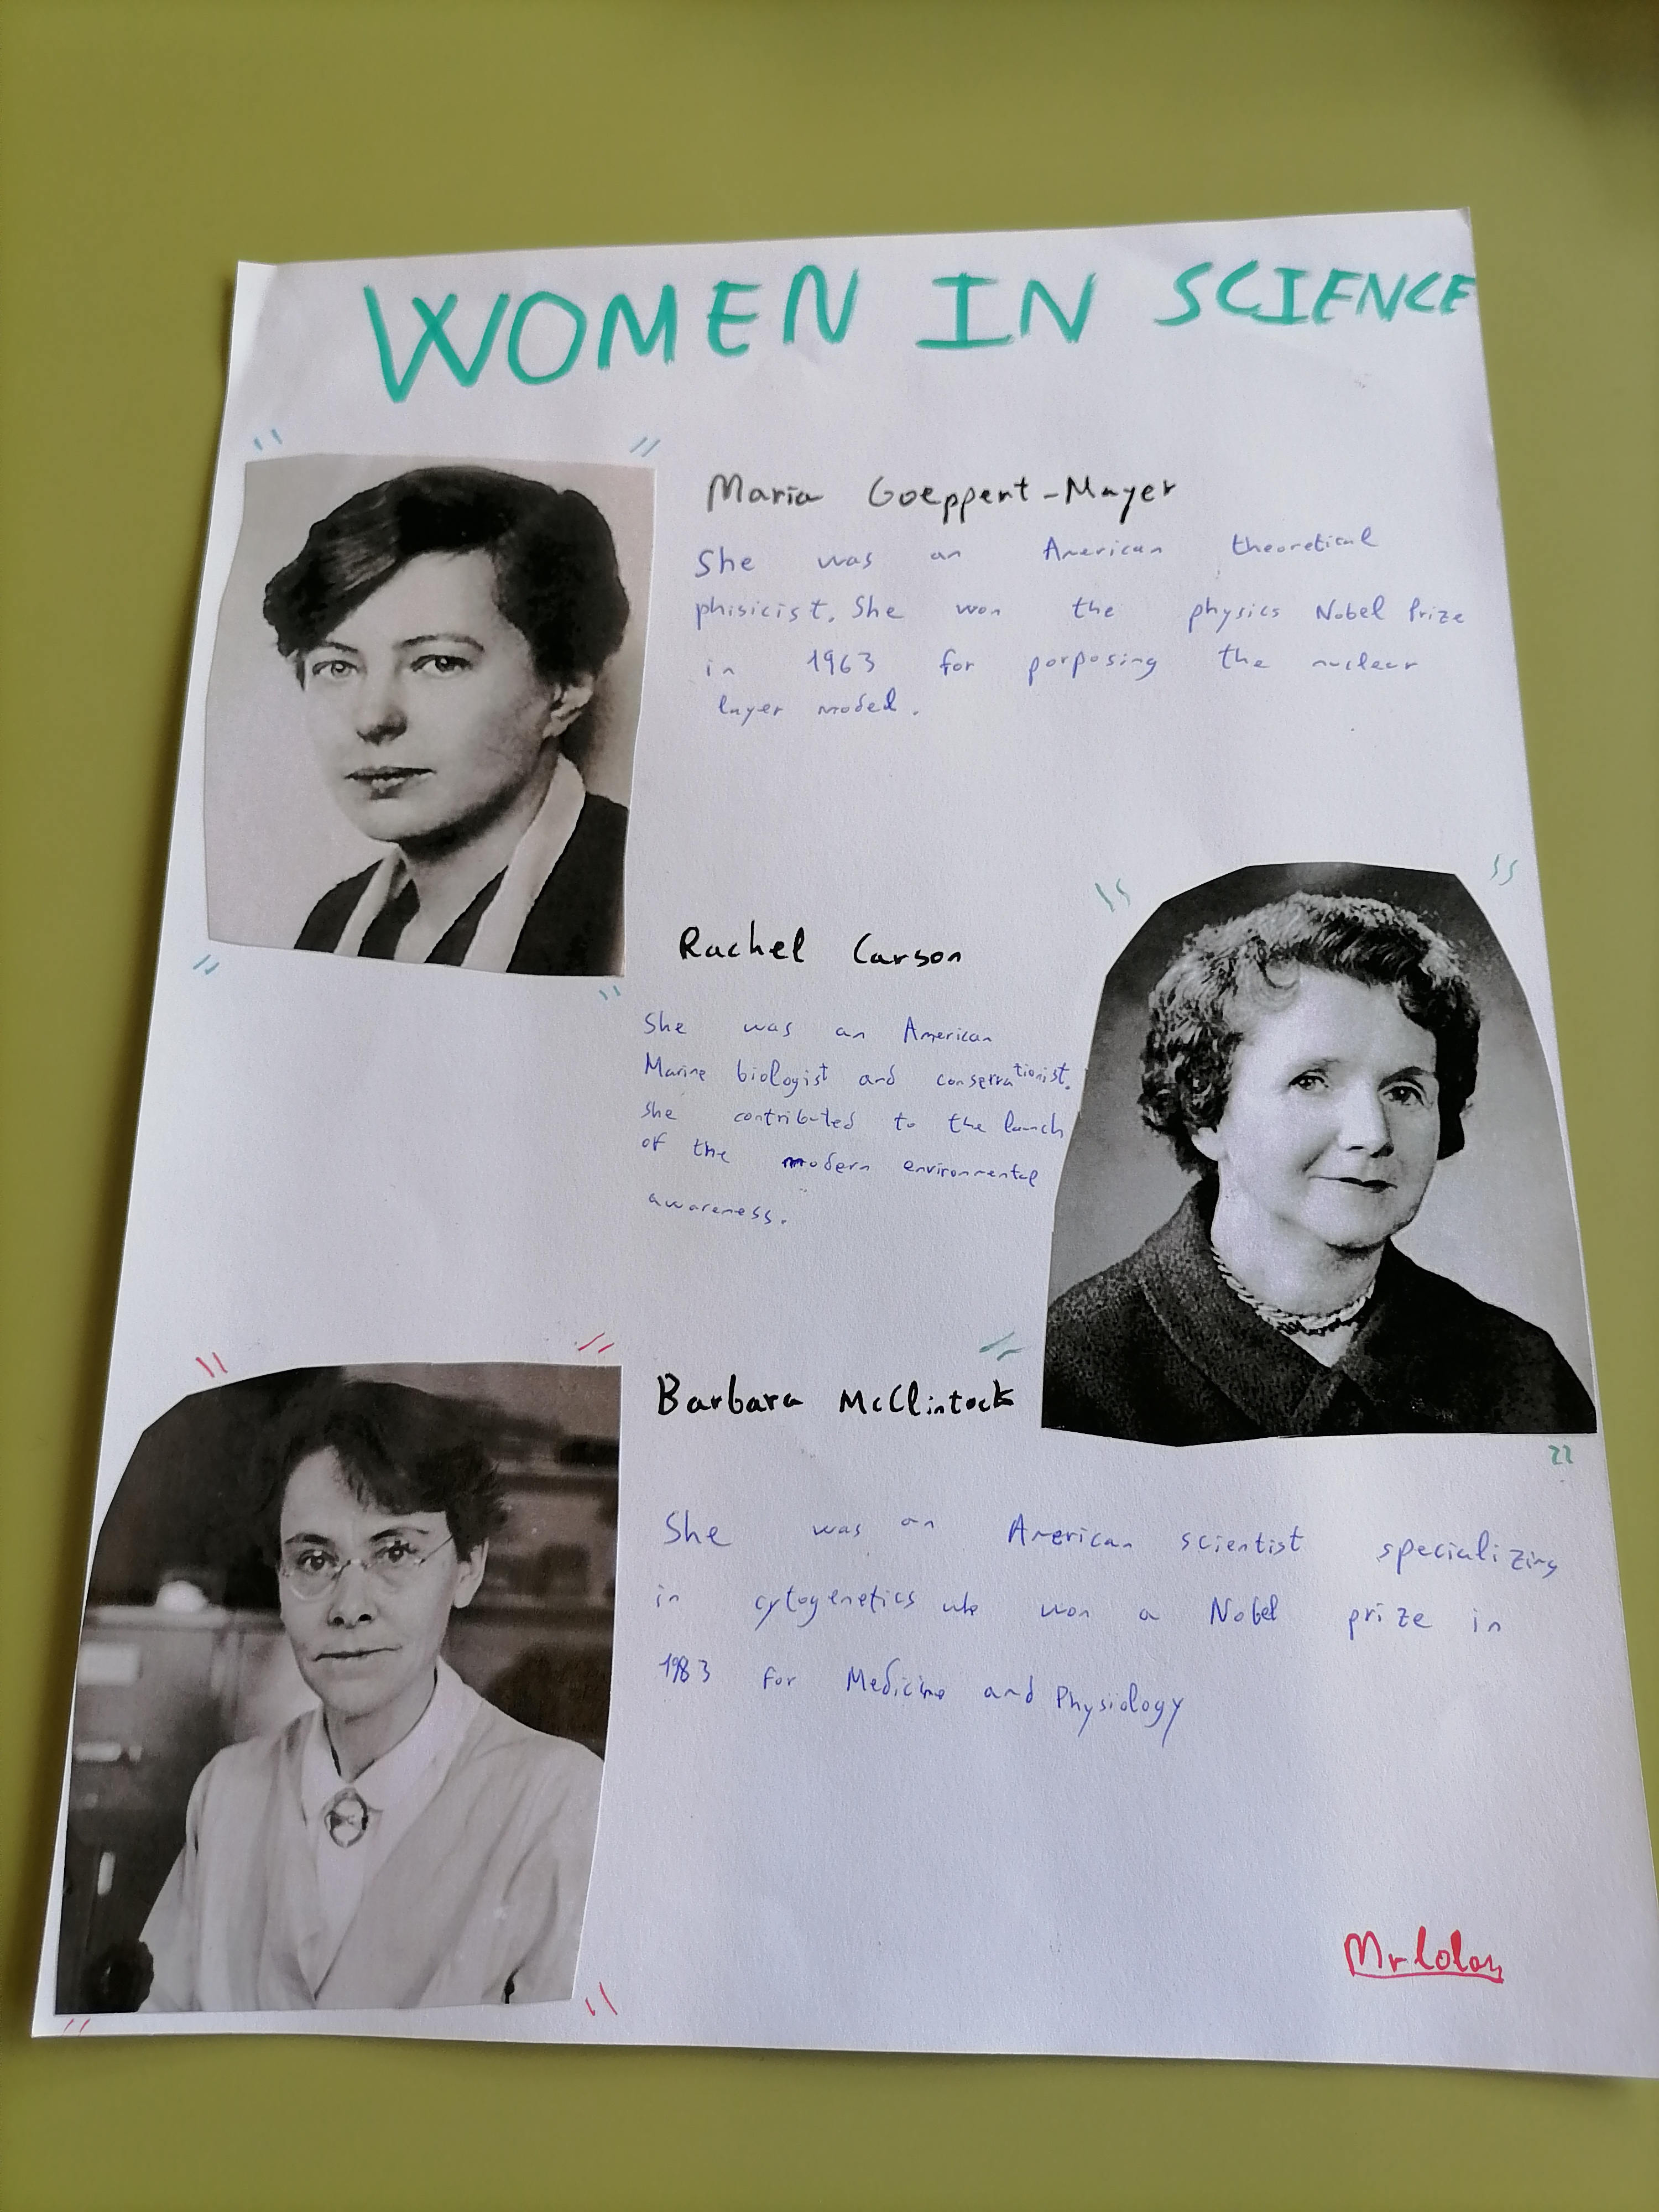 WOMEN IN SCIENCE
Maria Goeppert-Mayer
She was an American theoretical
phisicist. She won the physics Nobel Prize
in 1963 for porposing the nuclear
layer model.
Rachel Carson
She was an American
Marine biologist and conservationist.
She contributed to the launch
of the modern environmental
awareness.
Barbara McClintock
She was an American scientist specializing
in cytogenetics who won a Nobel prize in
1983 for Medicine and Physiology